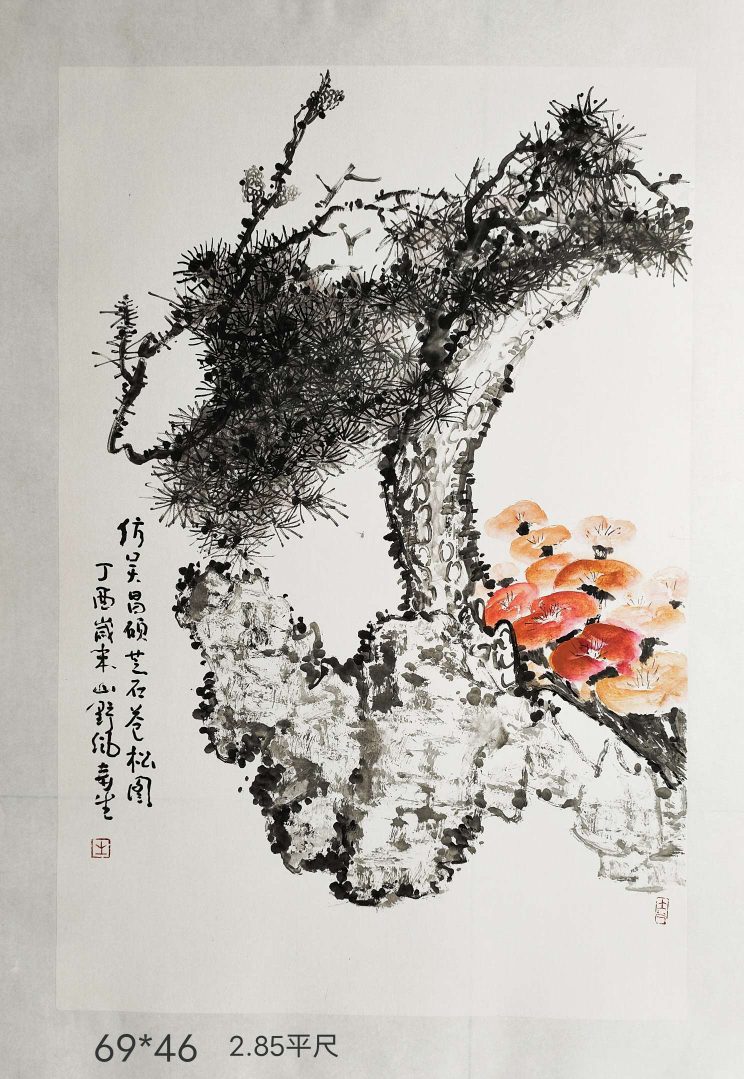 仿吴昌硕芝石苍松图
丁酉歳末山野生
69*46 2.85平尺